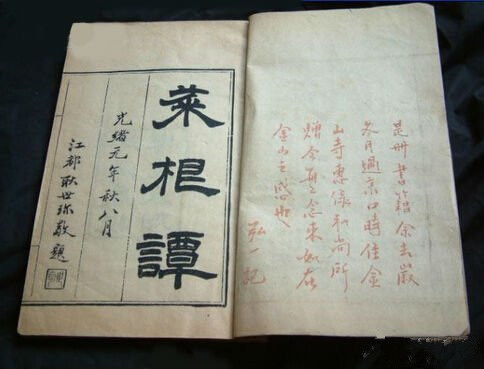 是册書籍余去歲
冬月過京口時住金
山寺惠和尚所
贈今念來如在
金山之感也
弘一記
菜根譚
光緒元年秋八月
江都耿世珍敬題